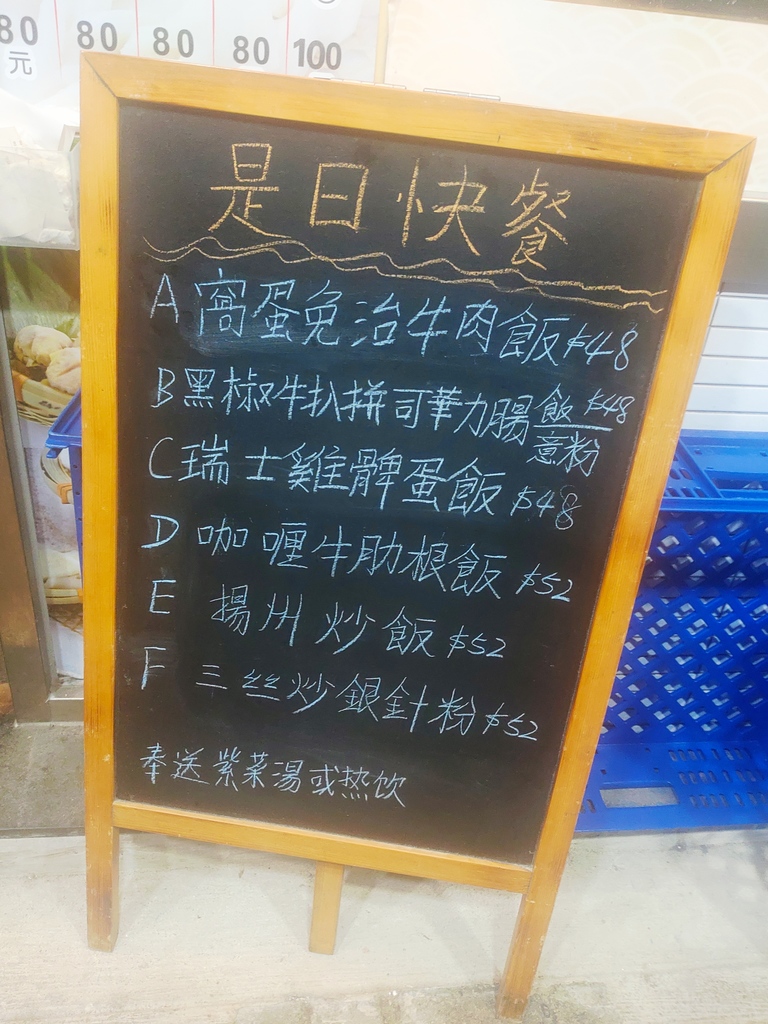 80 80 80 80 100
元
是日快餐
A 窩蛋免治牛肉飯 $48
B 黑椒牛扒拼可華力腸飯 $48
意粉
C 瑞士雞髀蛋飯 $48
D 咖喱牛肋根飯 $52
E 揚州炒飯 $52
F 三丝炒銀針粉 $52
奉送紫菜湯或热饮